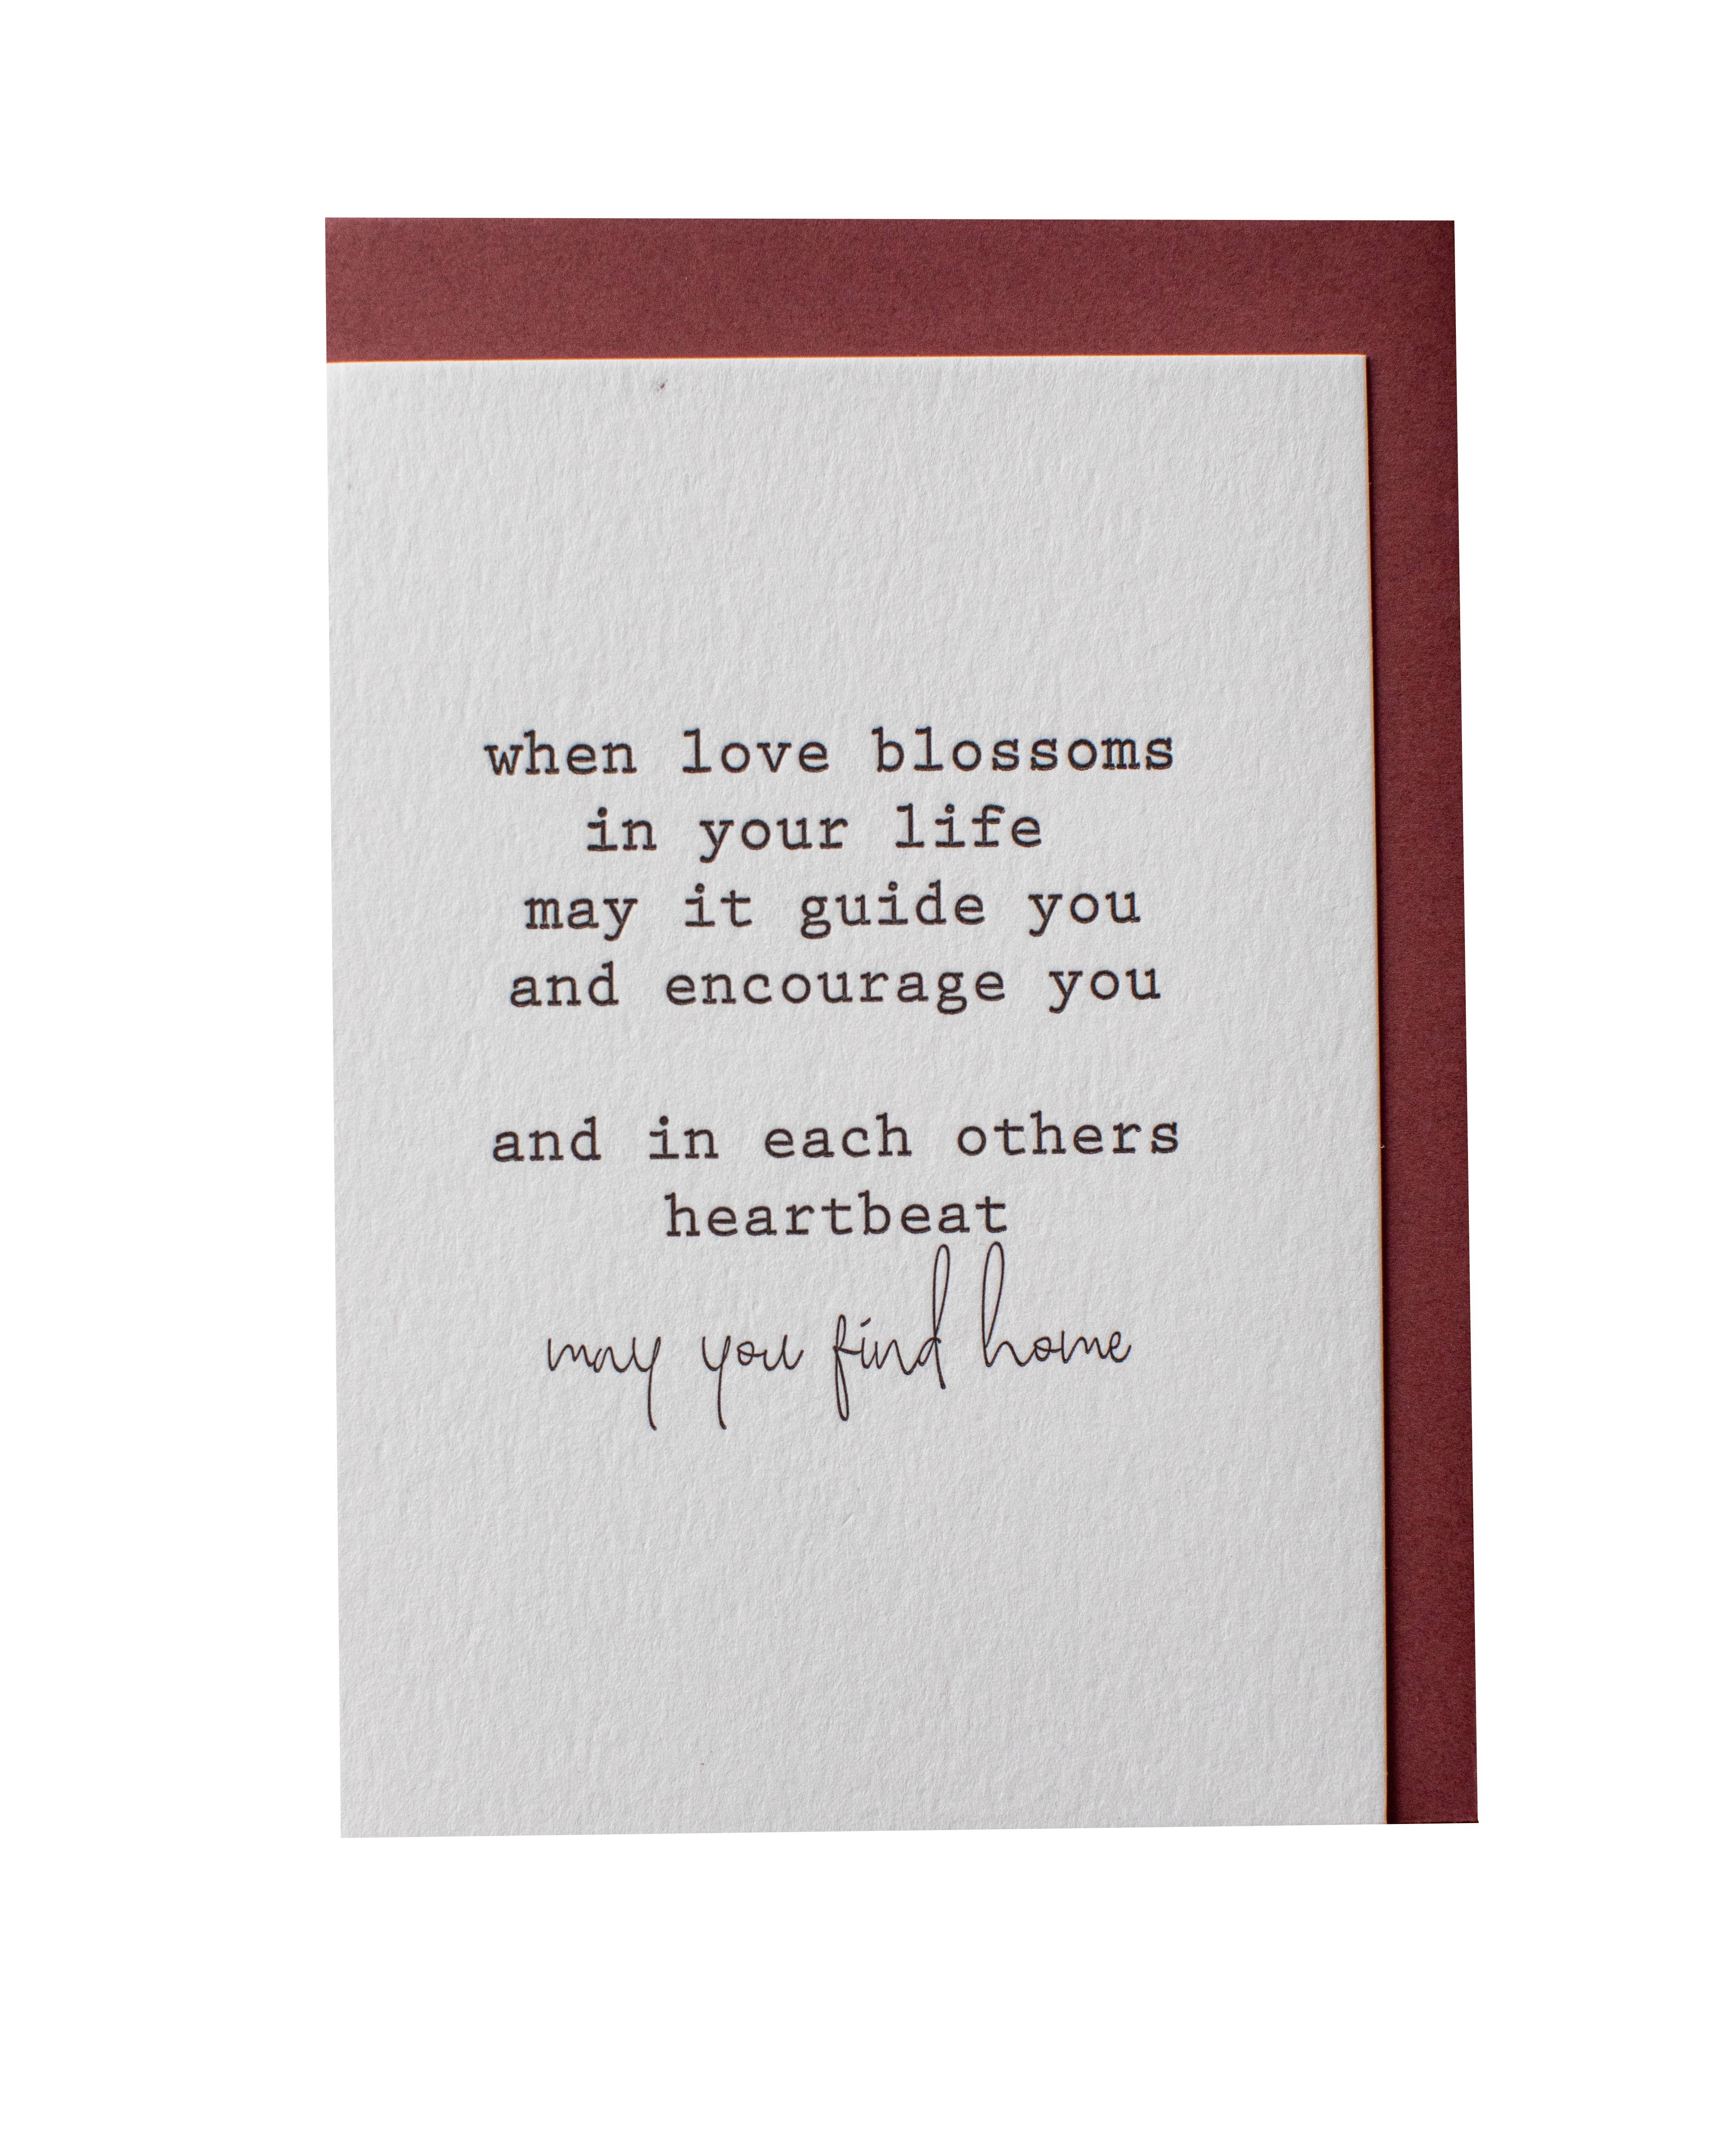 when love blossoms
in your life
may it guide you
and encourage you
and in each others
heartbeat
may you find home